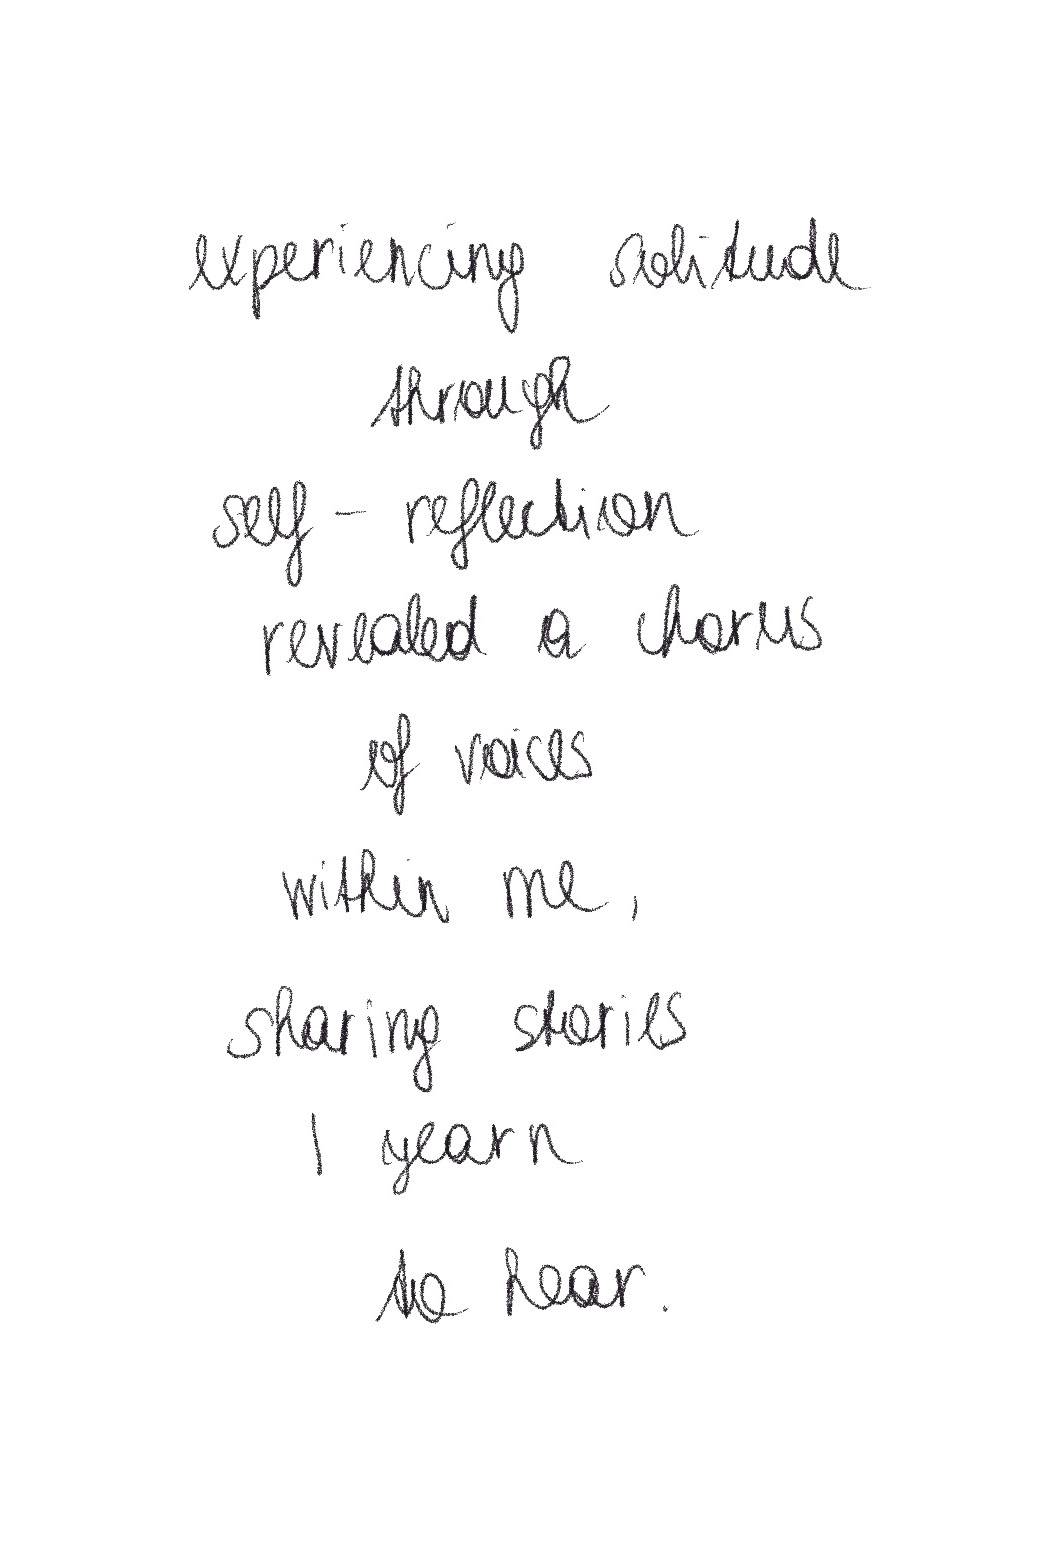 experiencing solitude
through
self-reflection
revealed a chorus
of voices
within me,
sharing stories
I yearn
to hear.